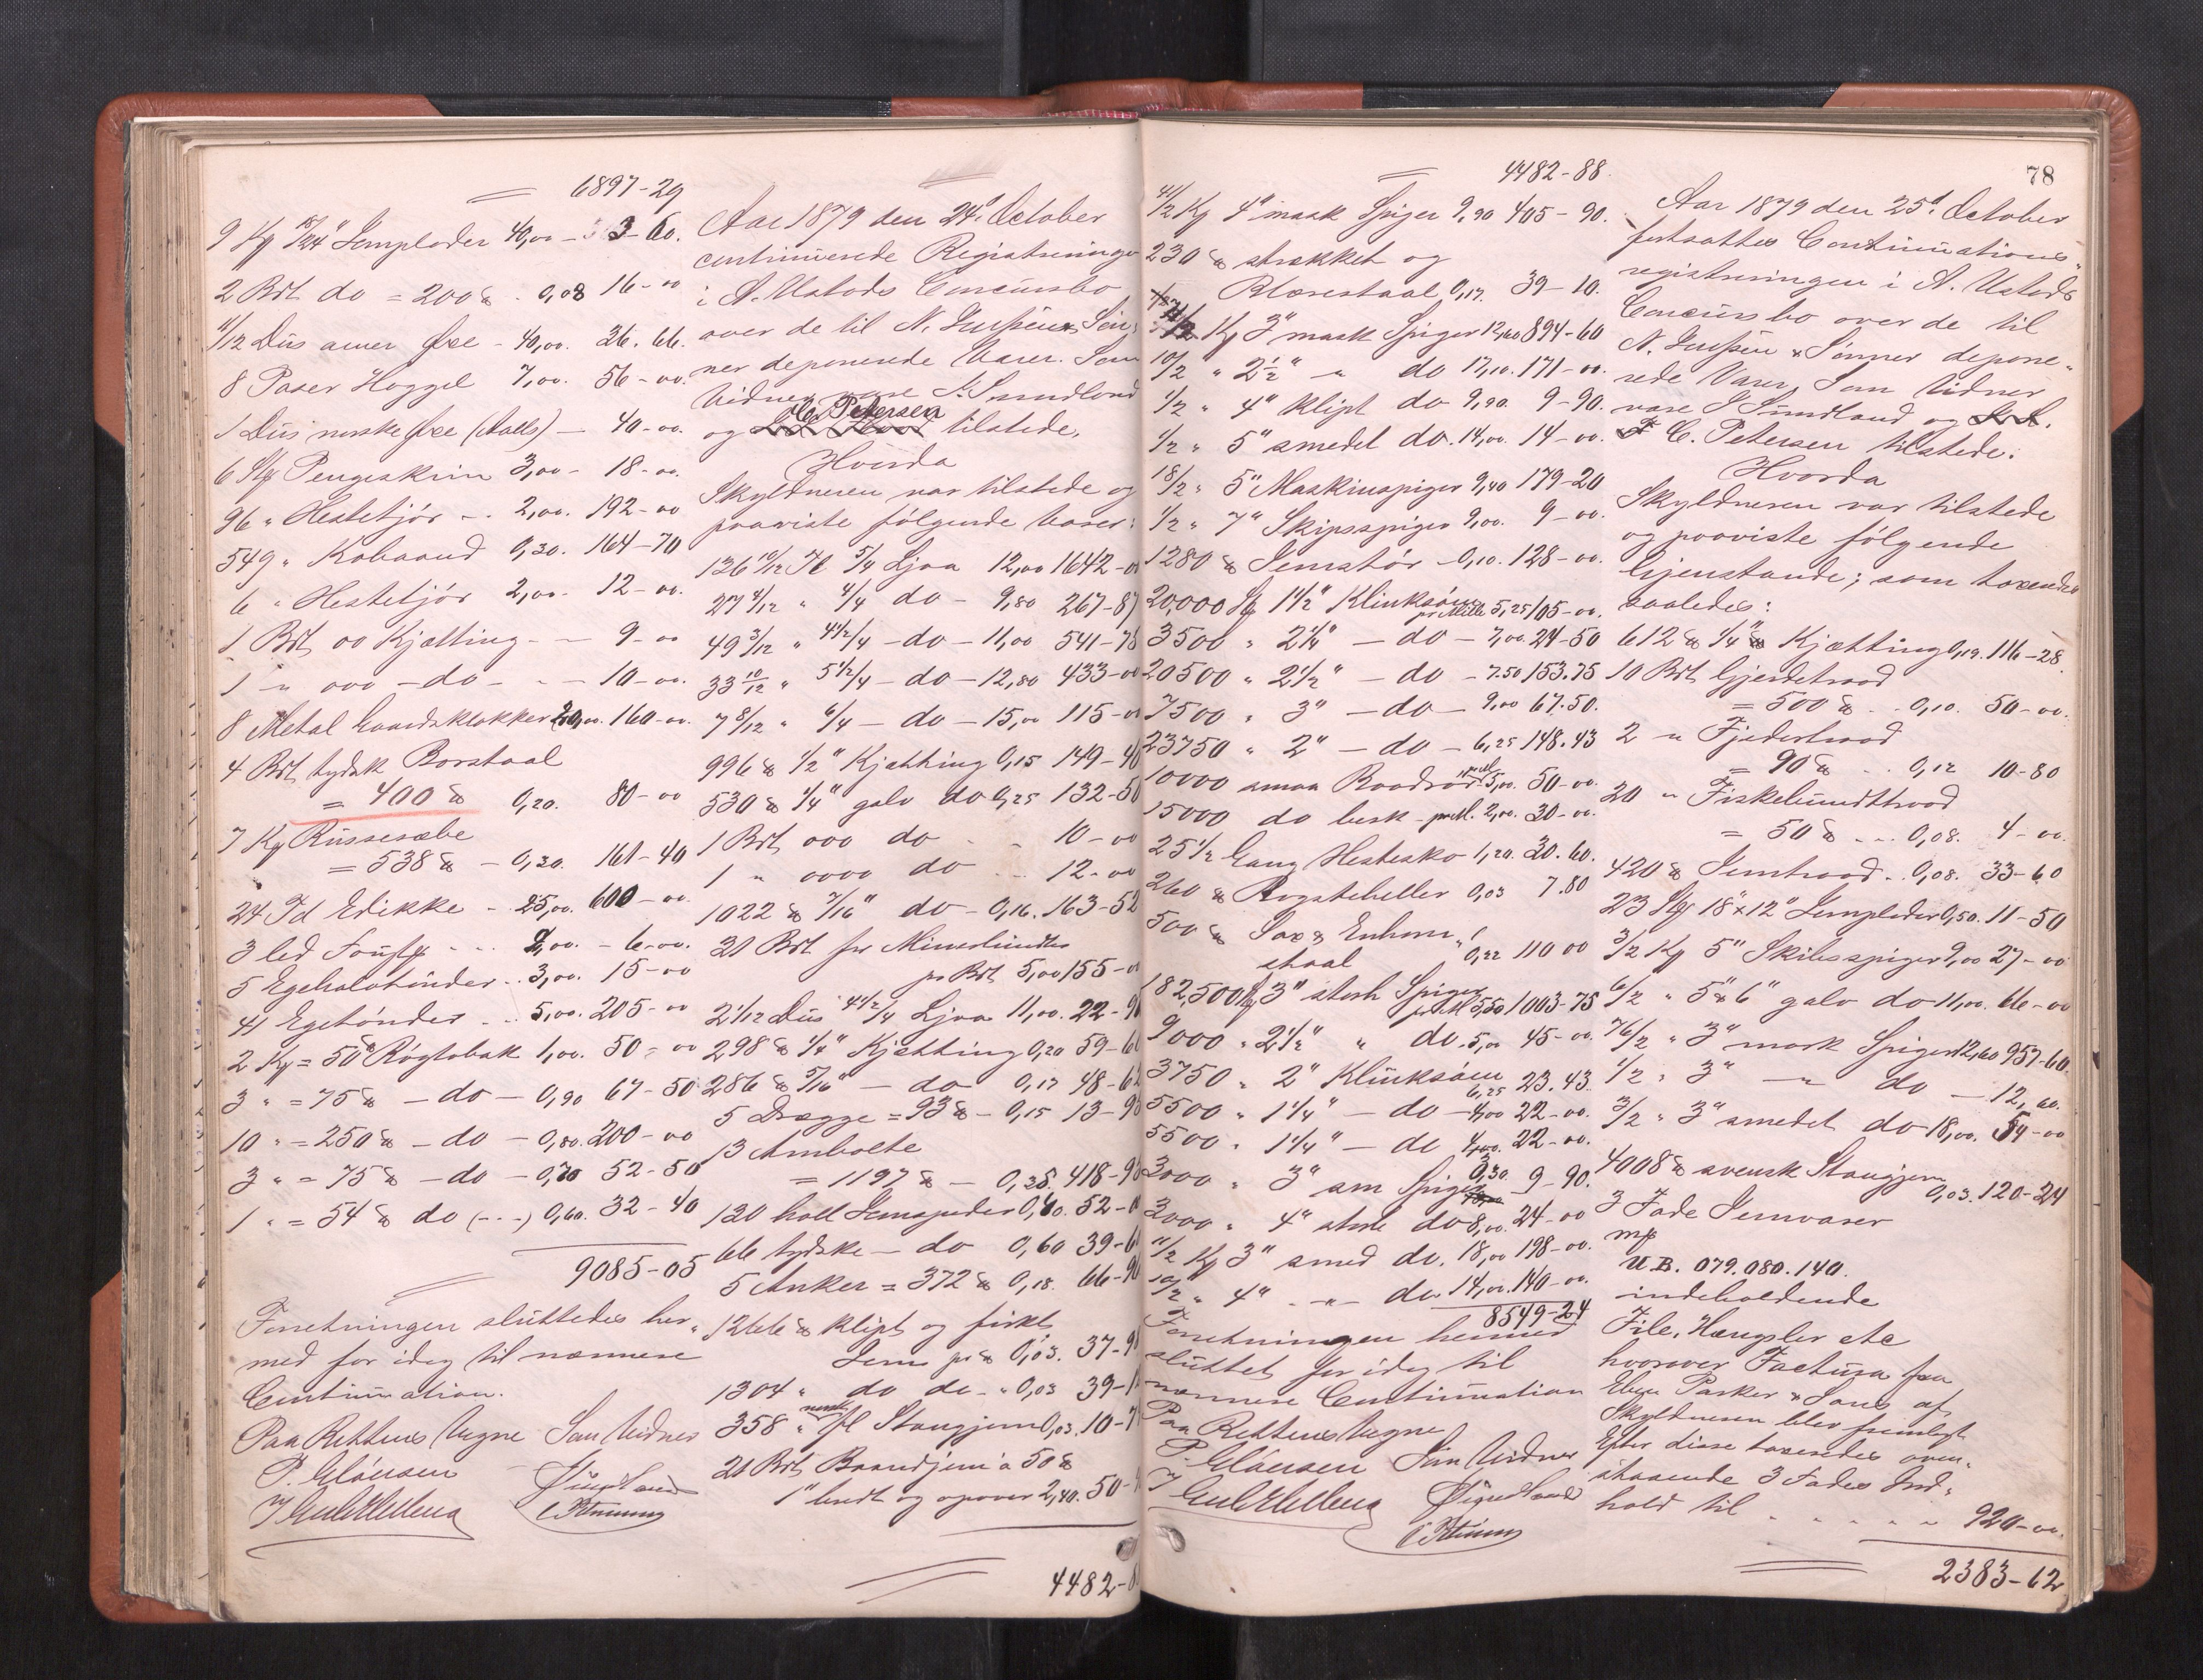 6897-29
9 Kg 18/24" Jernplader 40,00 - 3-60.
2 Bdt do = 200 ℔ - 0,08 16-00
11/12 Dus amer Øxe - 40,00. 36.66.
8 Poser Haggel 7,00. 56-00.
1 Dus norske Øxe (Aalls) - 40-00.
6 Stk Pengeskrin 3,00 - 18-00.
96 " Hestetjór - 2,00. 192-00
549 " Kobaand 0,30. 164-70
6 " Hestetjór 2,00 - 12-00.
1 Bdt 00 Kjætting - - 9-00
1 " 000 - do - - 10-00.
8 Metal Gaardsklokker 20,00. 160-00.
4 Bdt tydsk Borstaal
= 400 ℔ 0,20. 80-00
7 Kg Russesæbe
= 538 ℔ - 0,30. 161-40
24 Fd Edikke - 25,00. 600-00.
3 led - - 2,00. - 6-00.
5 Egehalvtónder - 3,00. 15-00
41 Egetónder - 5,00. 205-00
2 Kg = 50 ℔ Rógtobak 1,00. 50-00
3 " = 75 ℔ - do - 0,90 67-50
10 " = 250 ℔ - do - 0,80. 200-00
3 " = 75 ℔ - do - 0,70 52-50
1 " = 54 ℔ do (- - -) 0,60. 32-40
9085-05
Forretningen sluttedes her-
med for idag til nærmere
Continuation.
Paa Rettens Vegne Som Vidner
P. Claussen
Aar 1879 den 24' October
continuerede Registreringen
i A. Ustads Concursbo
over de til N. Jussens Søn-
ner deponerede Varer. Som
Vidner vare S. Sundland
C. Petersen
og tilstede.
Hvorda
Skyldneren var tilstede og
paaviste fólgende Varer:
136 10/12 Tl 5/4 Ljaa 12,00 1642-00
27 4/12 " 4/4 do - 9,80 267-87
49 3/12 " 4 1/2/4 - do - 11,00 541-75
33 10/12 " 5 1/2/4 - do - 12,80 433-00
7 8/12 " 6/4 - do - 15,00 115-00
996 ℔ 1/2" Kjætting 0,15 149-40
530 ℔ 1/4" galv do 0,25 132-50
1 Bdt 000 do - - 10-00
1 " 0000 do - 12-00
1022 ℔ 7/16" do - 0,16. 163-52
31 Bdt for Minerlundter
pr Bdt 5,00 155-00
2 1/12 Dus 4 1/2/4 Ljaa 11,00. 22-9
298 ℔ 1/4" Kjætting 0,20 59-60
286 ℔ 5/16" - do - 0,17 48-62
5 Drægge = 93 ℔ - 0,15 13-95
13 Ambolte
= 1197 ℔ - 0,35. 418-95
130 holl Jernspader 0,40. 52-0
66 tydske - do 0,60 39-6
5 Anker = 372 ℔ 0,18. 66-96
1266 ℔ klipt og firkt
Jern pr ℔ 0,03. 37-98
1304 " do do - " 0,03 39-1
norsk
358 " fl Stangjern 0,03. 10-7
21 Bdt Baandjern a 50 ℔
1" bredt og opover 2,40. 50-4
4482-8
78
4482-88.
41/2 Kg 4" mask Spiger 9,90 405-90.
230 ℔ strækket og
Blærestaal 0,17. 39-10.
71/2 Kg 3" mask Spiger 12,60 894-60
10/2 " 2 1/2" " do 17,10. 171-00.
1/2 " 4" klipt do 9,90. 9-90.
1/2 " 5" smedet do. 14,00. 14-00.
18/2 " 5" Maskinspiger 9,40 179-20
1/2 " 7" Skipsspiger 9,00. 9-00.
1280 ℔ Jernstór - 0,10. 128-00.
20,000 Stk 1 1/2" Klinksóm
pr Mille 5,25 105-00.
3500 " 2 1/4" - do - 7,00. 24-50
20500 " 2 1/2" - do - 7.50 153.75
7500 " 3" - do - 9,00 67.50.
23750 " 2" - do - 6,25 148.43
10000 smaa Roadsóm 5,00. 50-00.
15000 do besk - pr M. 2,00. 30-00.
25 1/2 Gang Hestesko 1,20. 30.60.
260 ℔ Rogsteheller 0,03 7.80
500 ℔ Sax & Enhorn
staal 0,22 110 00
182,500 Stk 3" stosk Spiger
pr M 5,50 1003-75
9000 " 2 1/2" " do. 5,00 45-00.
3750 " 2" Klinksóm
6,25 23.43.
5500 " 1 1/4" - do - 4,00 22-00.
5500 " 1 1/4" - do 4,00. 22-00.
3000 " 3" am Spiger 3,30. 9-90.
3000 " 4" stosk do 8,00. 24-00
11/2 Kg 3" smed do. 18,00 198-00.
10/2 " 4" - " - do 14,00. 140-00.
8549-24
Forretningen hermed
sluttet for idag til
nærmere Continuation
Paa Rettens Vegne
P. Claussen Som Vidner
Aar 1879 den 25' October
fortsattes Continuations-
registreringen i A. Ustads
Concursbo over de til
N. Jussen & Sønner depone-
rede Varer. Som Vidner
vare S Sundland og
C. Petersen tilstede.
Hvorda
Skyldneren var tilstede
og paaviste fólgende
Gjenstande; som taxeredes
saaledes:
612 ℔ 1/4" Kjætting 0,19. 116-28.
10 Bdt Gjerdetraad
= 500 ℔ - 0,10. 50-00.
2 " Fjedertraad
= 90 ℔ - 0,12 10-80
20 " Fiskebundttraad
= 50 ℔ - 0,08. 4-00.
420 ℔ Jerntraad - 0,08. 33-60
23 Stk 18" x 12" Jernplader 0,50. 11-50
3/2 Kg 5" Skibsspiger 9,00 27-00
6/2 " 5" x 6" galv do 11,00. 66-00
76/2 " 3" mask Spiger 12,60 957-60.
1/2 " 3" - " do - 12,60.
3/2 " 3" smedet do 18,00. 54-00
4008 ℔ svensk Stangjern
0,03. 120-24
3 Fade Jernvarer
mp
U.B. 079.080.140.
indeholdende
File, Hængsler etc
hvorover Factura fra
Parker & Sons af
Skyldneren blev fremlagt
Efter disse taxeredes oven-
staaende 3 Fades Ind-
hold til - - - - - 920-00.
2383-62